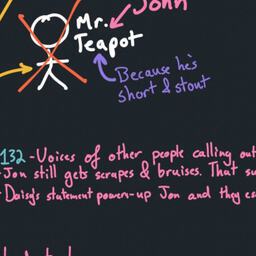 John
Mr.
Teapot
Because he's
short & stout
132 - Voices of other people calling out
Jon still gets scrapes & bruises. That su
Daisy's statement power-up Jon and they es